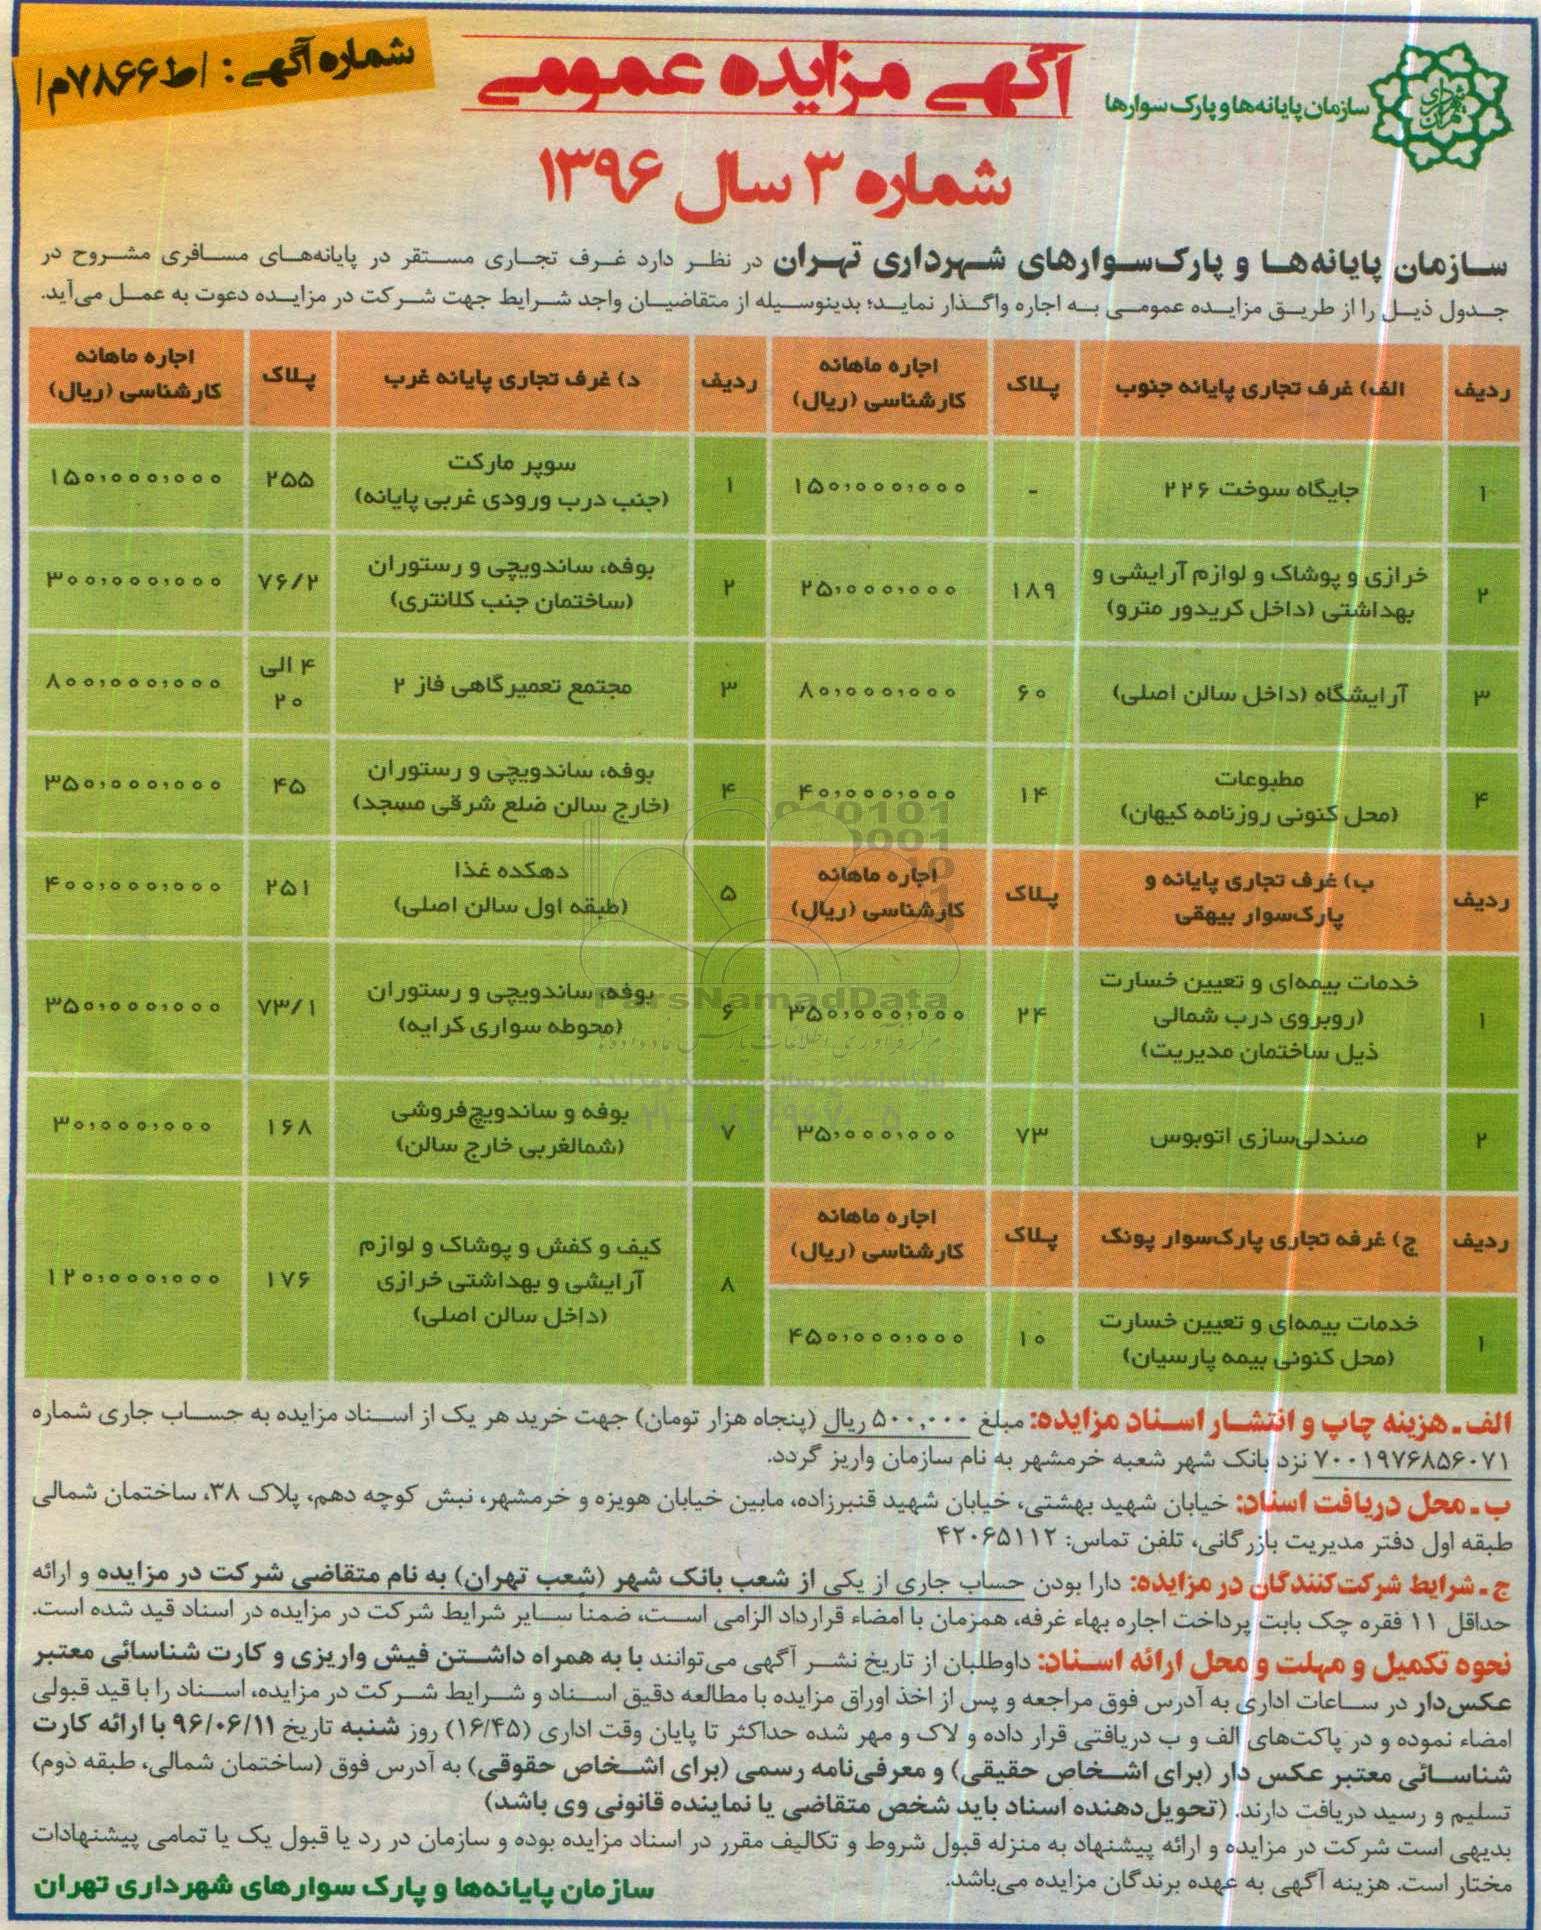 سازمان پایانه‌ها و پارک سوارها
آگهی مزایده عمومی
شماره آگهی: /ط۷۸۶۶م/
شماره ۳ سال ۱۳۹۶
سازمان پایانه‌ها و پارک‌سوارهای شهرداری تهران در نظر دارد غرف تجاری مستقر در پایانه‌های مسافری مشروح در
جدول ذیل را از طریق مزایده عمومی به اجاره واگذار نماید؛ بدینوسیله از متقاضیان واجد شرایط جهت شرکت در مزایده دعوت به عمل می‌آید.
ردیف | الف) غرف تجاری پایانه جنوب | پلاک | اجاره ماهانه کارشناسی (ریال)
۱ | جایگاه سوخت ۲۲۶ | - | ۱۵۰،۰۰۰،۰۰۰
۲ | خرازی و پوشاک و لوازم آرایشی و بهداشتی (داخل کریدور مترو) | ۱۸۹ | ۲۵،۰۰۰،۰۰۰
۳ | آرایشگاه (داخل سالن اصلی) | ۶۰ | ۸۰،۰۰۰،۰۰۰
۴ | مطبوعات (محل کنونی روزنامه کیهان) | ۱۴ | ۴۰،۰۰۰،۰۰۰
ردیف | ب) غرف تجاری پایانه و پارک‌سوار بیهقی | پلاک | اجاره ماهانه کارشناسی (ریال)
۱ | خدمات بیمه‌ای و تعیین خسارت (روبروی درب شمالی ذیل ساختمان مدیریت) | ۲۴ | ۳۵۰،۰۰۰،۰۰۰
۲ | صندلی‌سازی اتوبوس | ۷۳ | ۳۵،۰۰۰،۰۰۰
ردیف | ج) غرفه تجاری پارک‌سوار پونک | پلاک | اجاره ماهانه کارشناسی (ریال)
۱ | خدمات بیمه‌ای و تعیین خسارت (محل کنونی بیمه پارسیان) | ۱۰ | ۴۵۰،۰۰۰،۰۰۰
ردیف | د) غرف تجاری پایانه غرب | پلاک | اجاره ماهانه کارشناسی (ریال)
۱ | سوپر مارکت (جنب درب ورودی غربی پایانه) | ۲۵۵ | ۱۵۰،۰۰۰،۰۰۰
۲ | بوفه، ساندویچی و رستوران (ساختمان جنب کلانتری) | ۷۶/۲ | ۳۰۰،۰۰۰،۰۰۰
۳ | مجتمع تعمیرگاهی فاز ۲ | ۴ الی ۲۰ | ۸۰۰،۰۰۰،۰۰۰
۴ | بوفه، ساندویچی و رستوران (خارج سالن ضلع شرقی مسجد) | ۴۵ | ۳۵۰،۰۰۰،۰۰۰
۵ | دهکده غذا (طبقه اول سالن اصلی) | ۲۵۱ | ۴۰۰،۰۰۰،۰۰۰
۶ | بوفه، ساندویچی و رستوران (محوطه سواری کرایه) | ۷۳/۱ | ۳۵۰،۰۰۰،۰۰۰
۷ | بوفه و ساندویچ‌فروشی (شمالغربی خارج سالن) | ۱۶۸ | ۳۰،۰۰۰،۰۰۰
۸ | کیف و کفش و پوشاک و لوازم آرایشی و بهداشتی خرازی (داخل سالن اصلی) | ۱۷۶ | ۱۲۰،۰۰۰،۰۰۰
ParsNamadData
الف ـ هزینه چاپ و انتشار اسناد مزایده: مبلغ ۵۰۰,۰۰۰ ریال (پنجاه هزار تومان) جهت خرید هر یک از اسناد مزایده به حساب جاری شماره
۷۰۰۱۹۷۶۸۵۶۰۷۱ نزد بانک شهر شعبه خرمشهر به نام سازمان واریز گردد.
ب ـ محل دریافت اسناد: خیابان شهید بهشتی، خیابان شهید قنبرزاده، مابین خیابان هویزه و خرمشهر، نبش کوچه دهم، پلاک ۳۸، ساختمان شمالی
طبقه اول دفتر مدیریت بازرگانی، تلفن تماس: ۴۲۰۶۵۱۱۲
ج ـ شرایط شرکت‌کنندگان در مزایده: دارا بودن حساب جاری از یکی از شعب بانک شهر (شعب تهران) به نام متقاضی شرکت در مزایده و ارائه
حداقل ۱۱ فقره چک بابت پرداخت اجاره بهاء غرفه، همزمان با امضاء قرارداد الزامی است، ضمناً سایر شرایط شرکت در مزایده در اسناد قید شده است.
نحوه تکمیل و مهلت و محل ارائه اسناد: داوطلبان از تاریخ نشر آگهی می‌توانند با به همراه داشتن فیش واریزی و کارت شناسائی معتبر
عکس‌دار در ساعات اداری به آدرس فوق مراجعه و پس از اخذ اوراق مزایده با مطالعه دقیق اسناد و شرایط شرکت در مزایده، اسناد را با قید قبولی
امضاء نموده و در پاکت‌های الف و ب دریافتی قرار داده و لاک و مهر شده حداکثر تا پایان وقت اداری (۱۶/۴۵) روز شنبه تاریخ ۹۶/۰۶/۱۱ با ارائه کارت
شناسائی معتبر عکس دار (برای اشخاص حقیقی) و معرفی‌نامه رسمی (برای اشخاص حقوقی) به آدرس فوق (ساختمان شمالی، طبقه دوم)
تسلیم و رسید دریافت دارند. (تحویل‌دهنده اسناد باید شخص متقاضی یا نماینده قانونی وی باشد)
بدیهی است شرکت در مزایده و ارائه پیشنهاد به منزله قبول شروط و تکالیف مقرر در اسناد مزایده بوده و سازمان در رد یا قبول یک یا تمامی پیشنهادات
مختار است. هزینه آگهی به عهده برندگان مزایده می‌باشد.
سازمان پایانه‌ها و پارک سوارهای شهرداری تهران